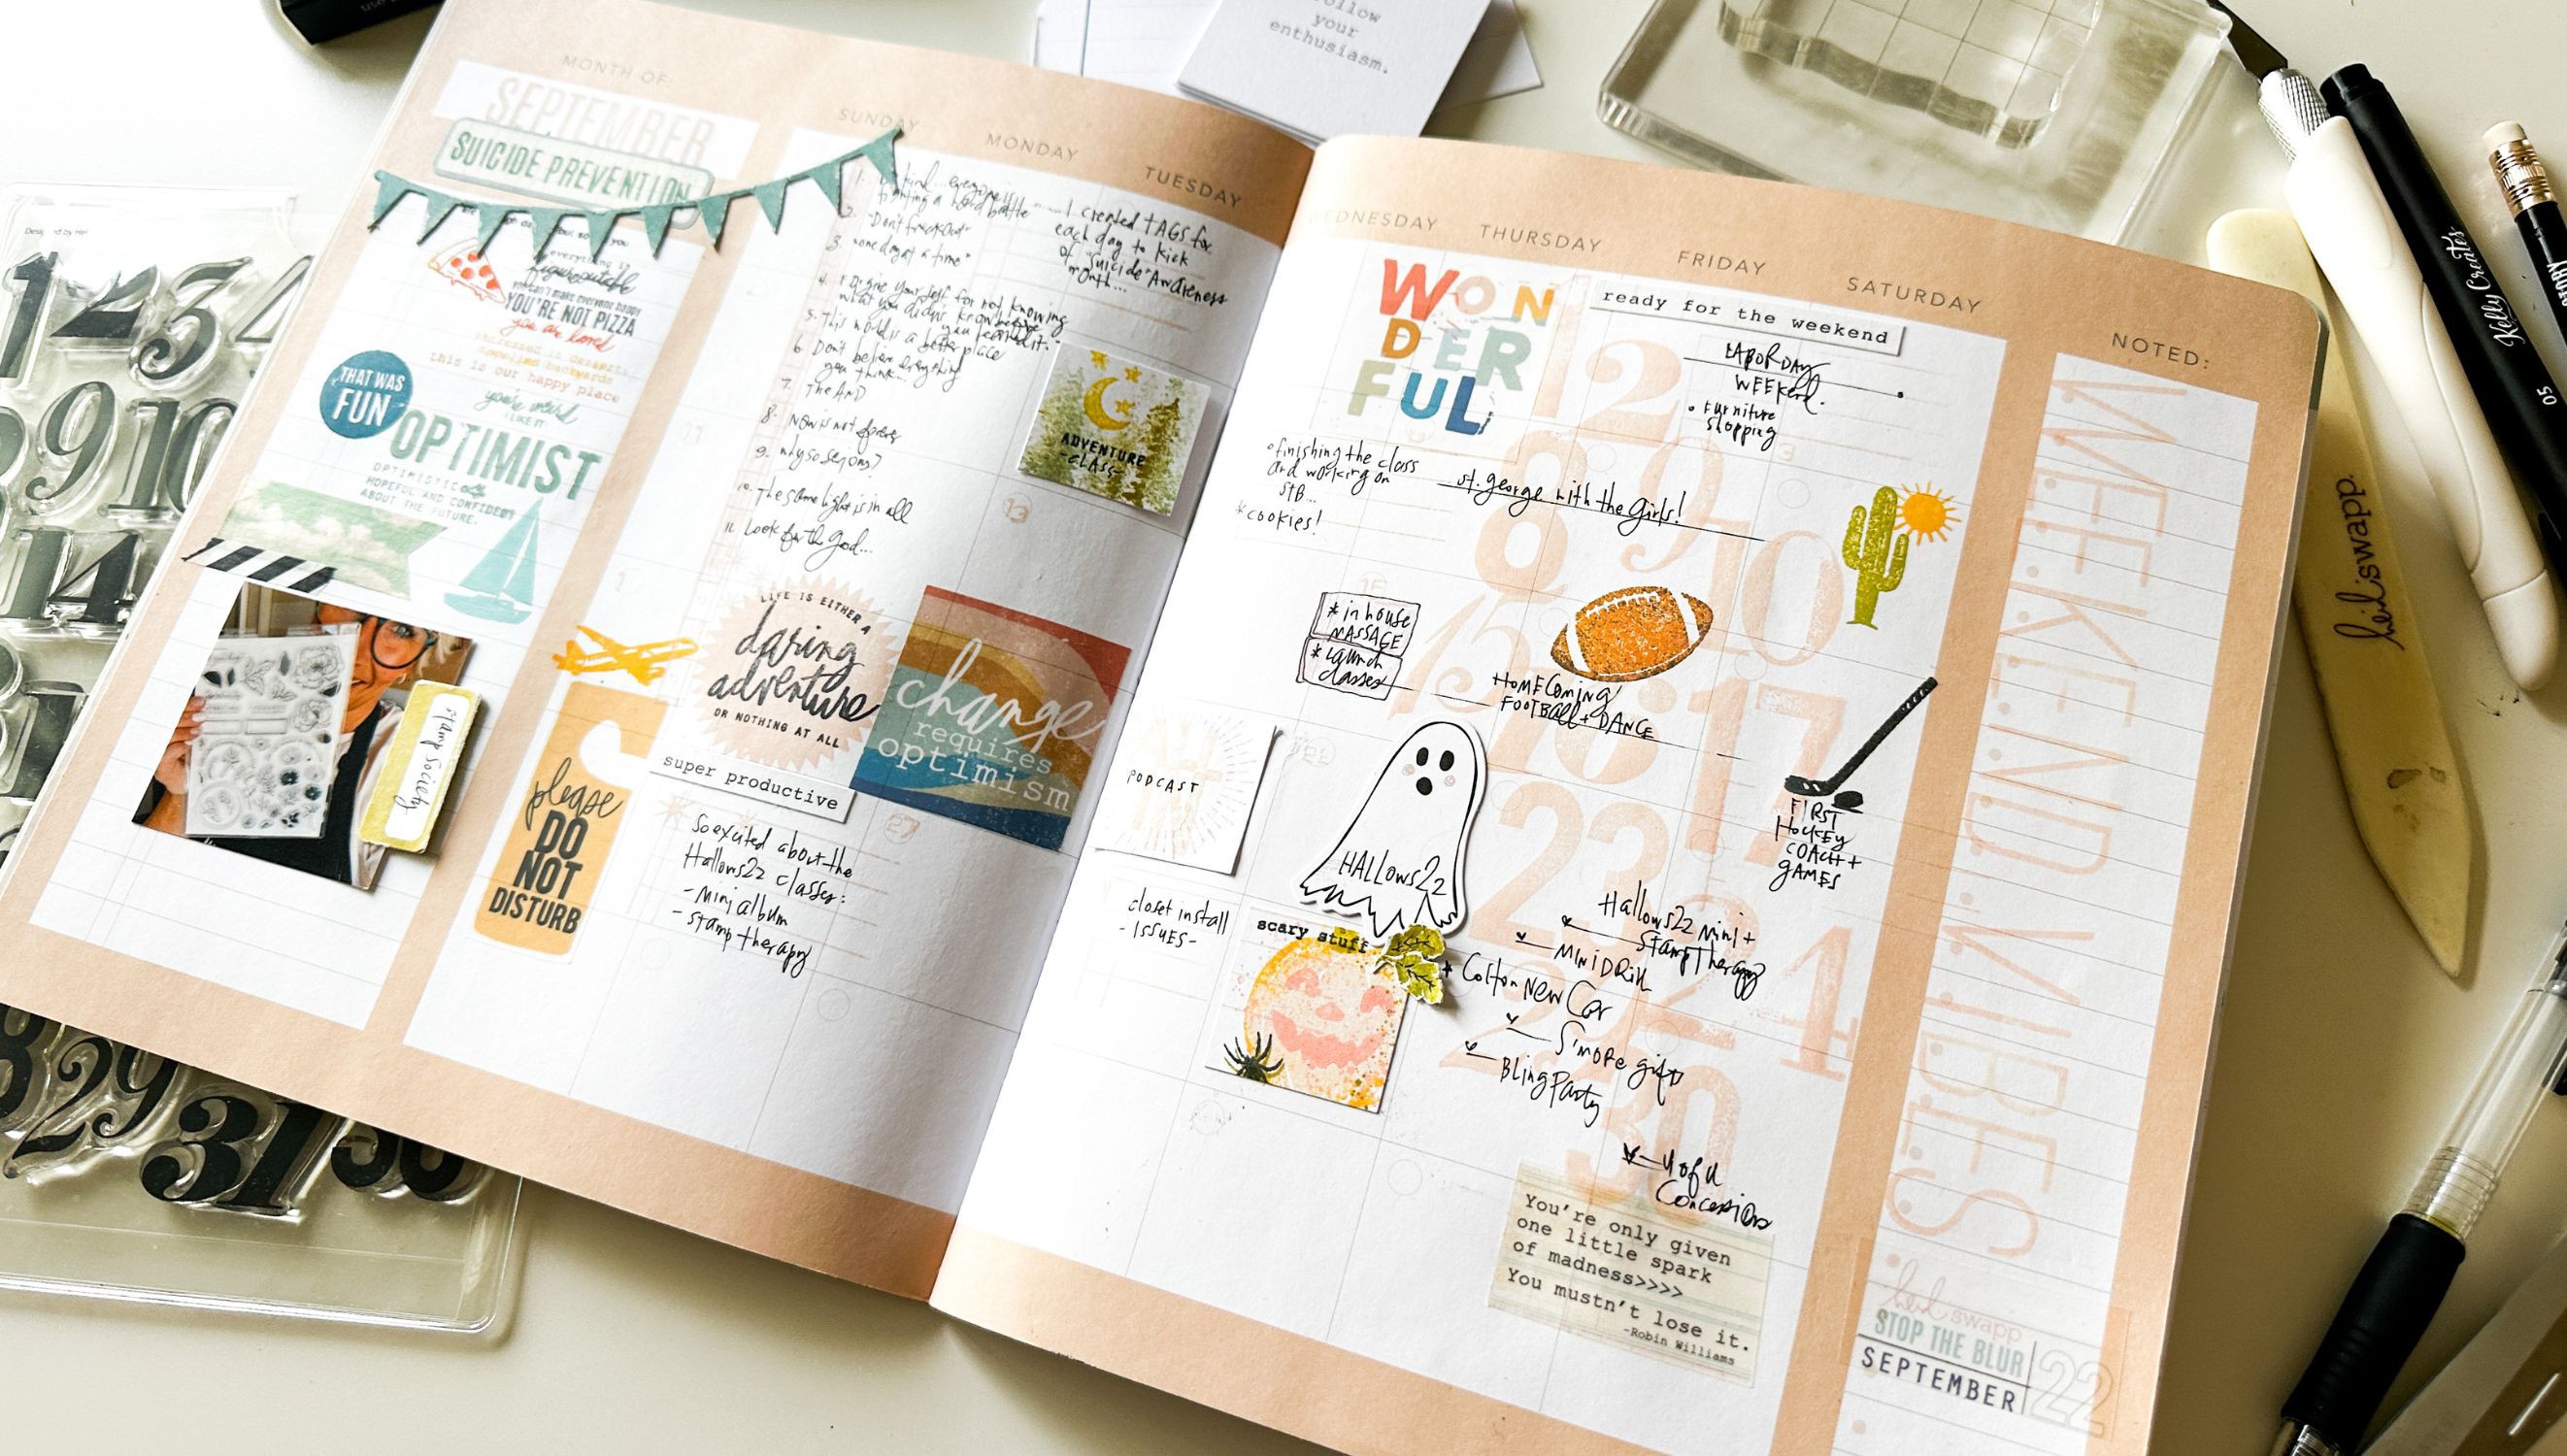 follow
your
enthusiasm.
MONTH OF:
SEPTEMBER
SUICIDE PREVENTION
everything is
figureoutable
you can't make everyone happy
YOU'RE NOT PIZZA
you are loved
stressed is desserts
spelled backwards
this is our happy place
you're weird
I LIKE IT
THAT WAS
FUN
OPTIMIST
OPTIMISTIC
HOPEFUL AND CONFIDENT
ABOUT THE FUTURE.
Stamp Society
SUNDAY
MONDAY
TUESDAY
1. kind... everyone is
fighting a hard battle
2. "Don't freak Out"
3. "one day at a time"
4. Forgive yourself for not knowing
what you didn't know before
you learned it.
5. This world is a better place
6. Don't believe everything
you think...
7. The AND
8. NOW is not forever
9. why so serious?
10. The same light is in all
11. Look for the good...
I created TAGS for
each day to kick
of "Suicide" AWAreness
month...
ADVENTURE
-CLASS-
13
LIFE IS EITHER A
daring
adventure
OR NOTHING AT ALL
change
requires
optimism
please
DO
NOT
DISTURB
super productive
27
So excited about the
Hallows22 classes:
- Mini album
- stamp therapy
WEDNESDAY
THURSDAY
FRIDAY
SATURDAY
NOTED:
WONDERFUL
ready for the weekend
LABOR DAY
WEEKend.
• Furniture
Shopping
• finishing the class
and working on
STB...
*cookies!
st. george with the girls!
15
* in house
MASSAGE
* launch
classes
HOMECOMING
FOOTBALL + DANCE
FIRST
HOCKEY
COACH +
GAMES
PODCAST
22
HALLOWS22
closet install
- ISSUES -
scary stuff
Hallows22 Mini +
Stamp Therapy
MINI DRill
Colton New Car
S'more gift
Bling Party
U of U
Concessions
You're only given
one little spark
of madness>>>>
You mustn't lose it.
-Robin Williams
1 2
8 9 10
15 16 17
23 24
30
WEEKEND.VIBES
heidi swapp
STOP THE BLUR
SEPTEMBER 22
1 2 3 4
9 10
14
29
31
Kelly Creates
05
heidi swapp